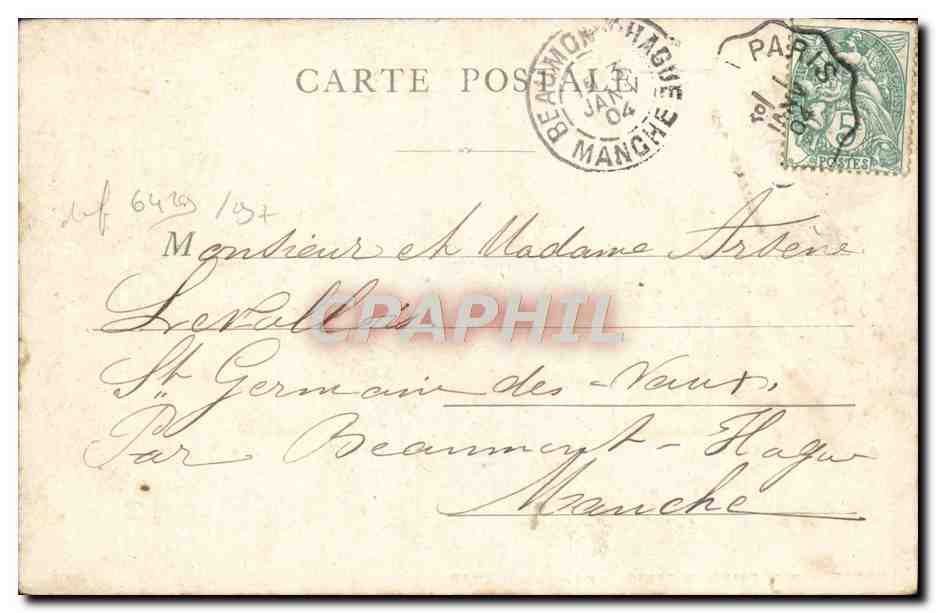 CARTE POSTALE
BEAUMONT-HAGUE
3
JANV
04
MANCHE
PARIS
JANV
04
5
POSTES
Monsieur et Madame Arsène
Levallois
CPAPHIL
St Germain des-Vaux,
Par Beaumont-Hague
Manche